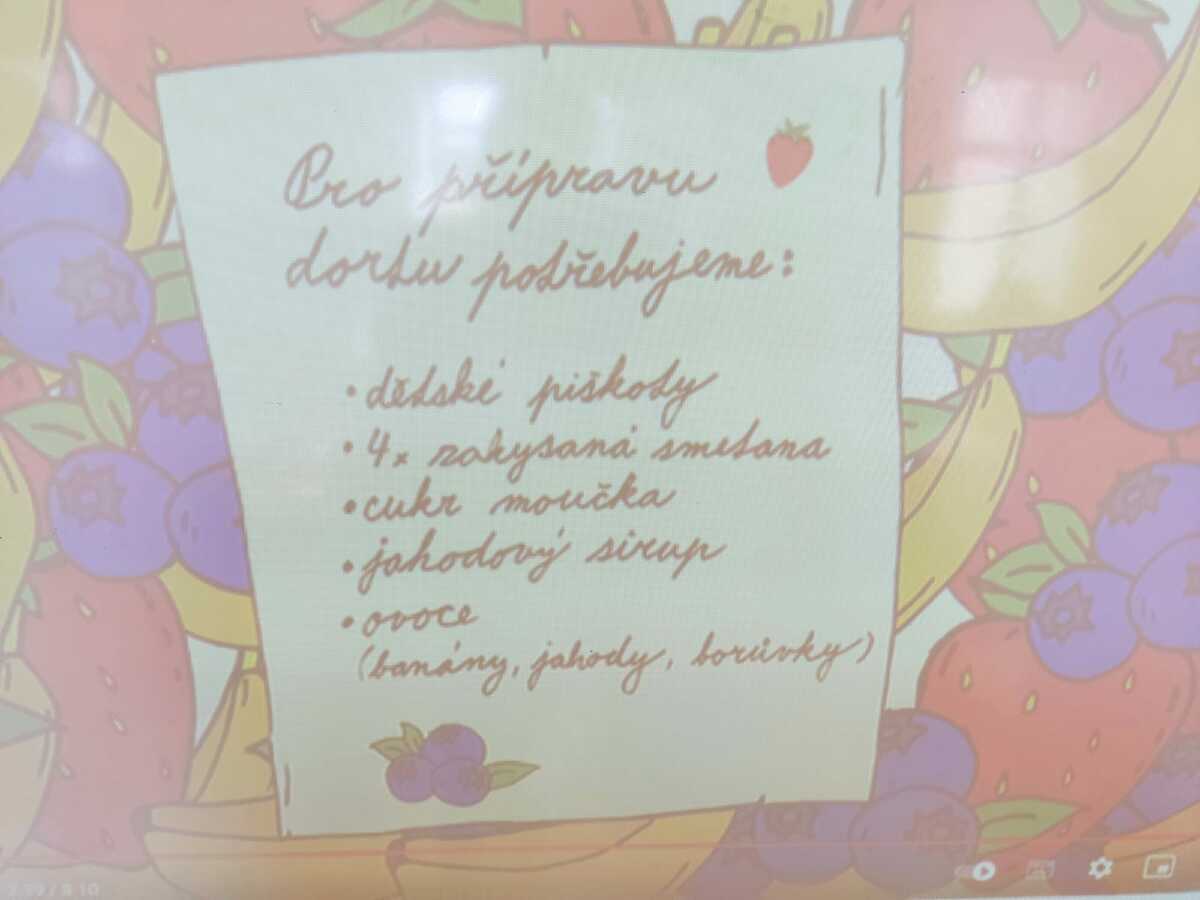 Pro přípravu
dortu potřebujeme:
• dětské piškoty
• 4x zakysaná smetana
• cukr moučka
• jahodový sirup
• ovoce
(banány, jahody, borůvky)